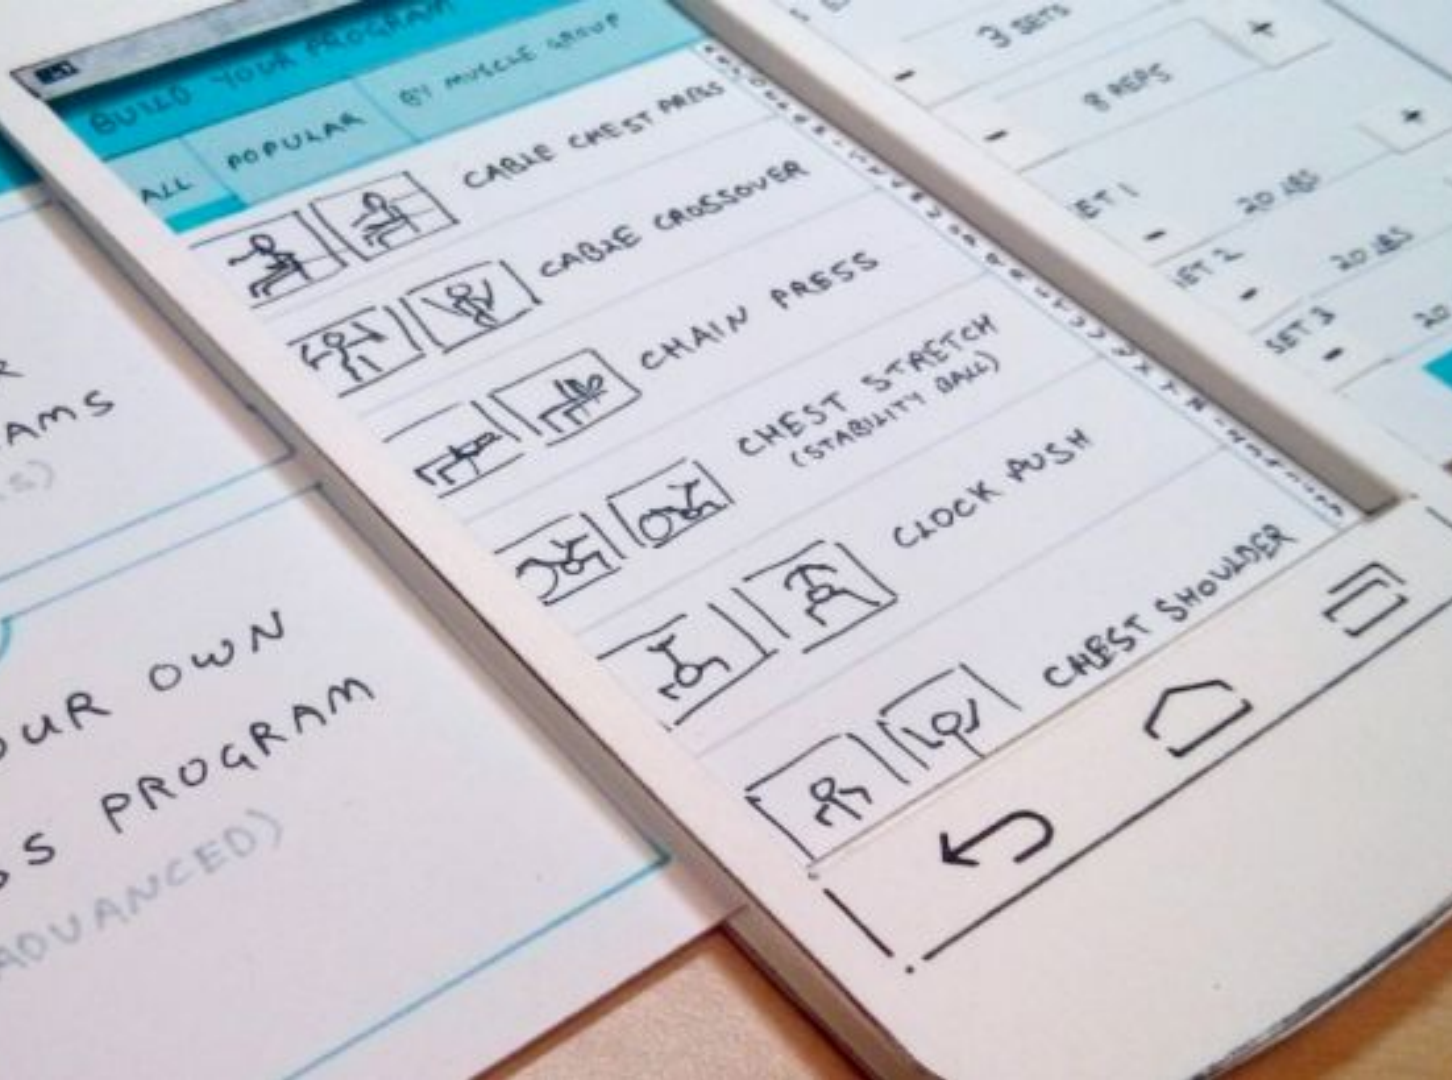 BUILD YOUR PROGRAM
ALL
POPULAR
BY MUSCLE GROUP
CABLE CHEST PRESS
CABLE CROSSOVER
CHAIN PRESS
CHEST STRETCH
(STABILITY BALL)
CLOCK PUSH
CHEST SHOULDER
R
AMS
S)
OUR OWN
SS PROGRAM
ADVANCED)
3 SETS
+
-
8 REPS
+
-
ET 1
20 LBS
-
SET 2
20 LBS
-
SET 3
20
-